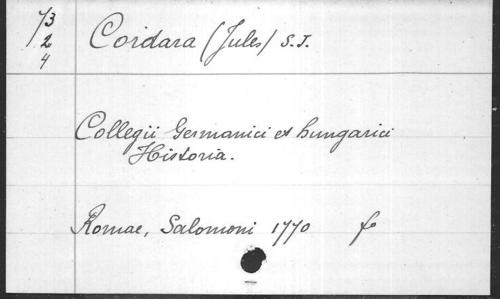 73
2
4
Cordara (Jules) S.J.
Collegii Germanici et hungarici
Historia.
Romae, Salomoni 1770 fo